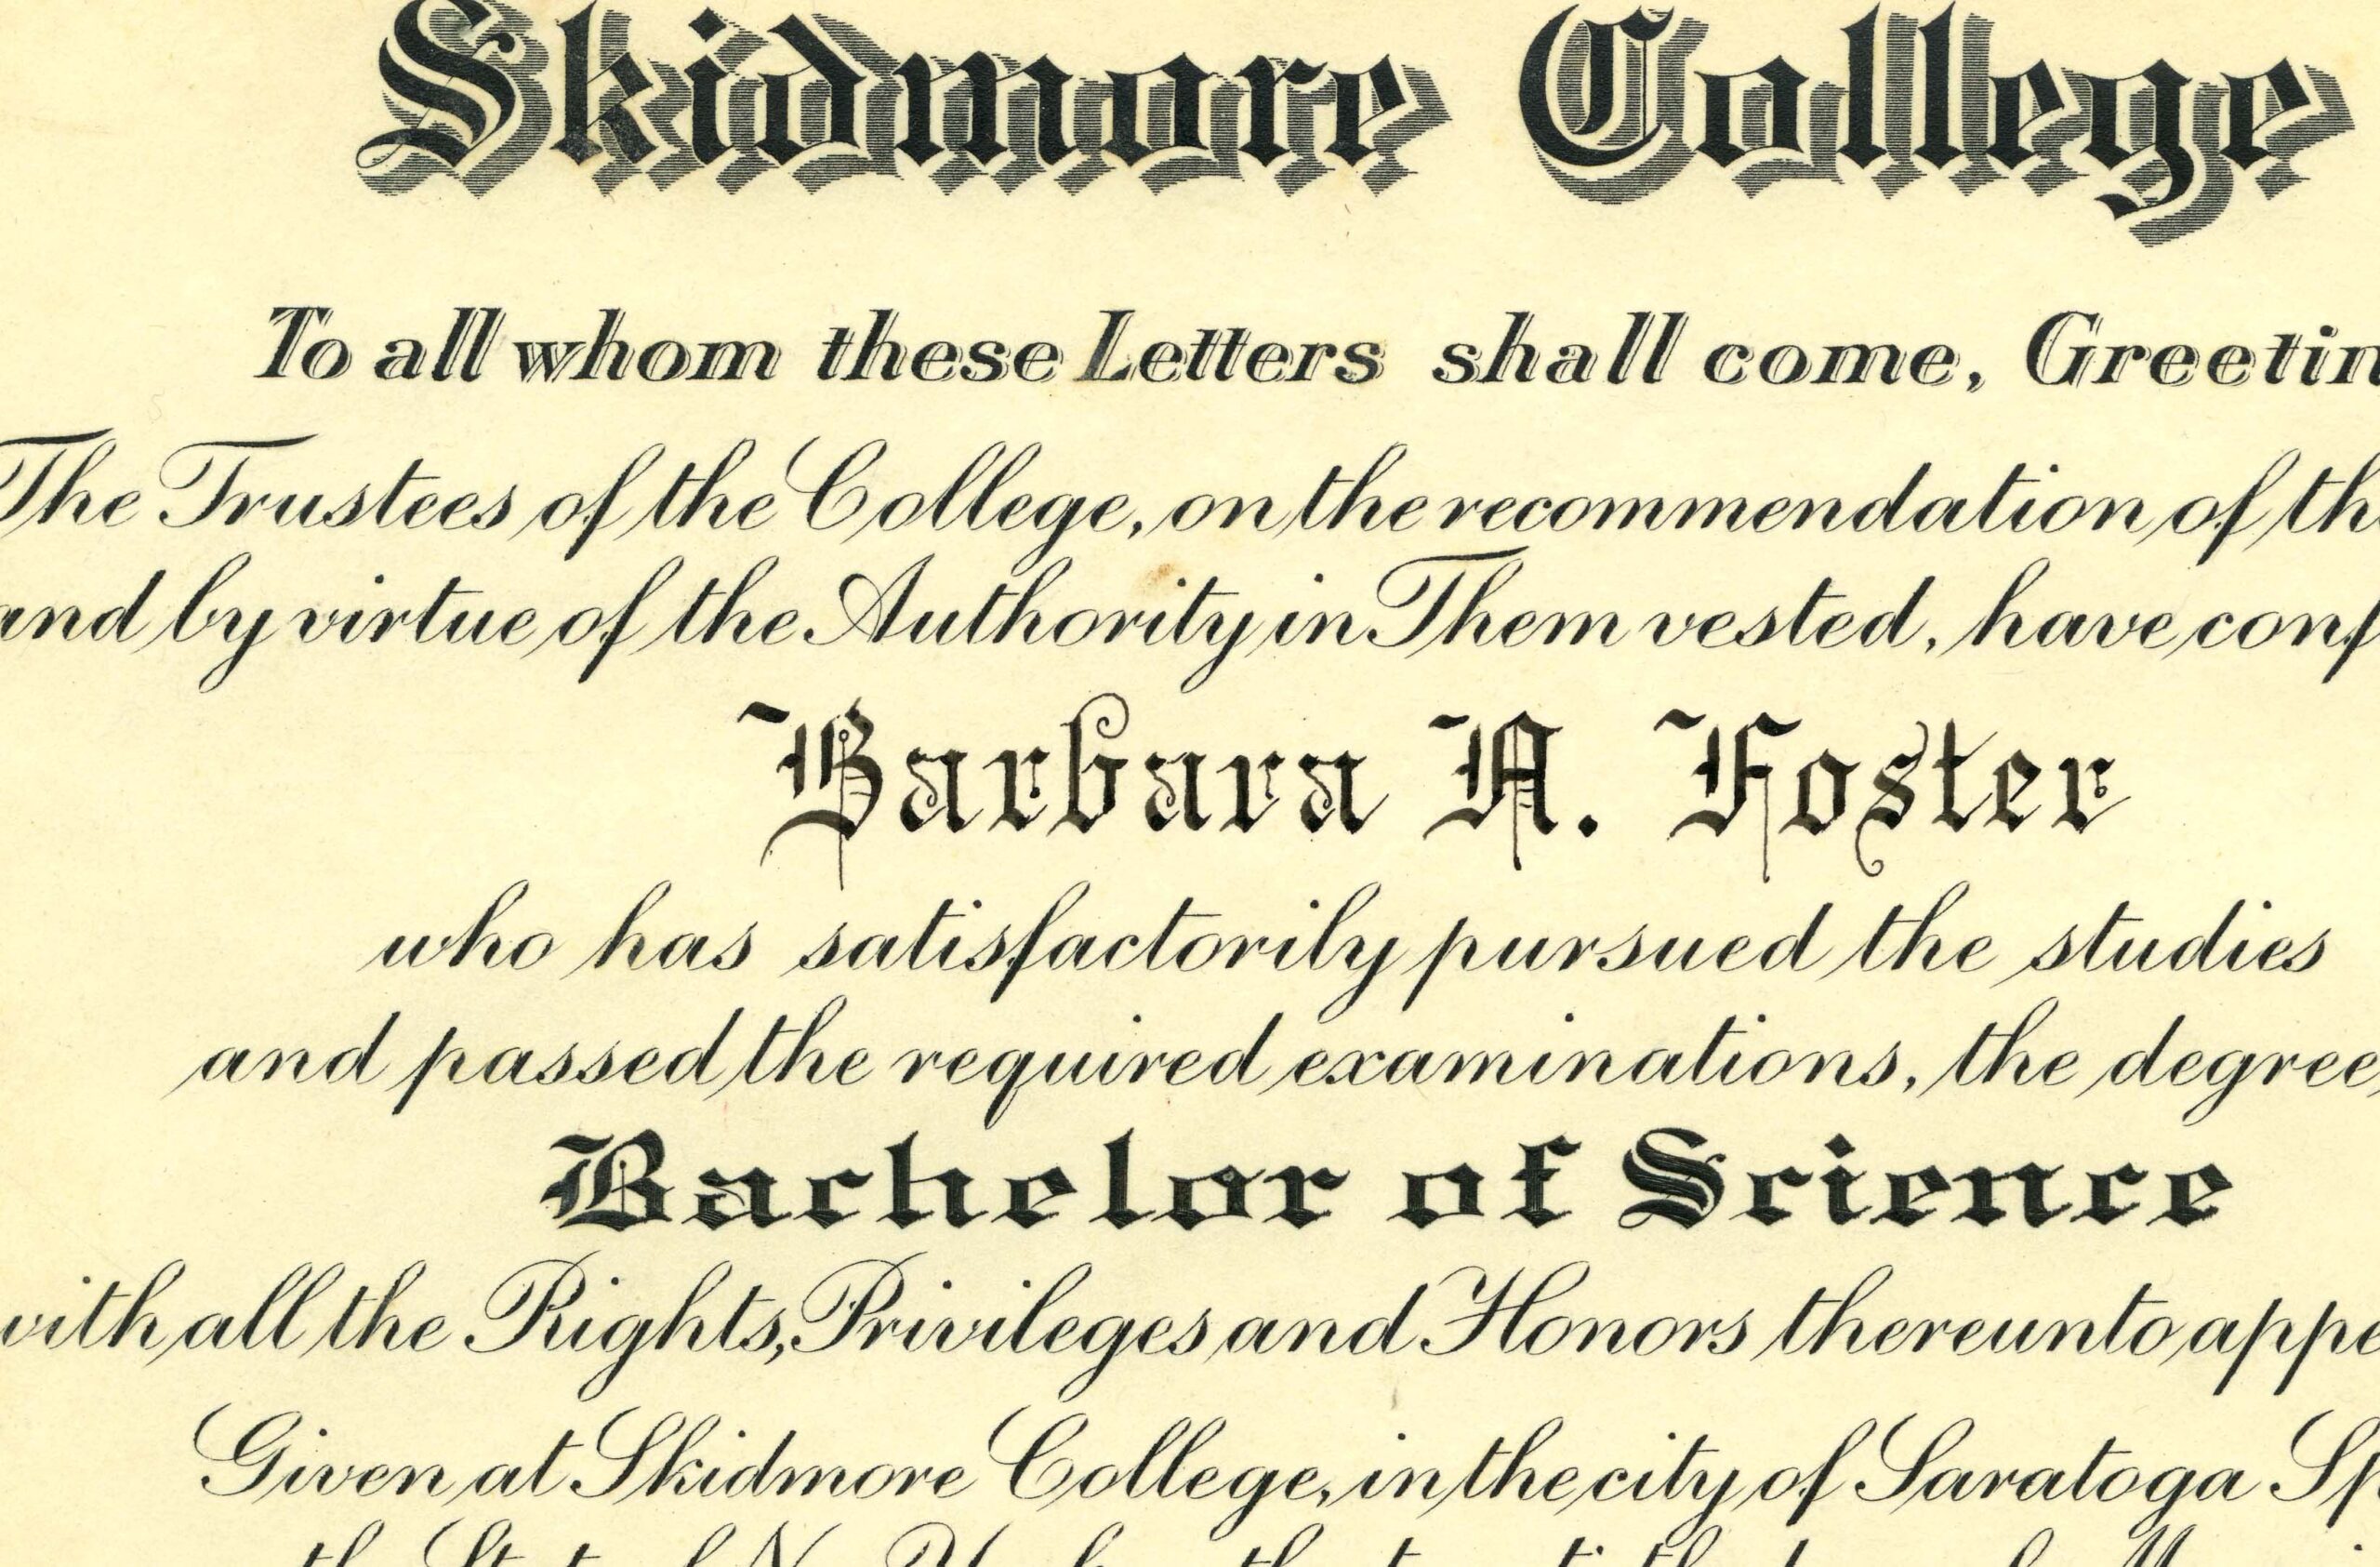 Skidmore College
To all whom these Letters shall come, Greetin
The Trustees of the College, on the recommendation of th
and by virtue of the Authority in Them vested, have conf
Barbara A. Foster
who has satisfactorily pursued the studies
and passed the required examinations, the degree
Bachelor of Science
with all the Rights, Privileges and Honors thereunto appe
Given at Skidmore College, in the city of Saratoga Sp